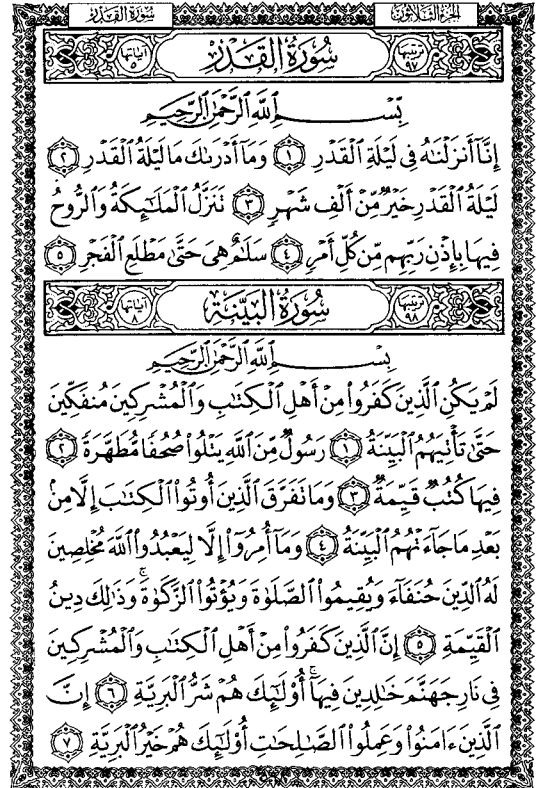 سُورَةُ القَدْرِ الجُزْءُ الثَّلَاثُونَ
ترتيبها ٩٧ سُورَةُ القَدْرِ آياتها ٥
بِسْمِ اللَّهِ الرَّحْمَٰنِ الرَّحِيمِ
إِنَّآ أَنزَلْنَٰهُ فِى لَيْلَةِ ٱلْقَدْرِ ١ وَمَآ أَدْرَىٰكَ مَا لَيْلَةُ ٱلْقَدْرِ ٢
لَيْلَةُ ٱلْقَدْرِ خَيْرٌ مِّنْ أَلْفِ شَهْرٍ ٣ تَنَزَّلُ ٱلْمَلَٰٓئِكَةُ وَٱلرُّوحُ
فِيهَا بِإِذْنِ رَبِّهِم مِّن كُلِّ أَمْرٍ ٤ سَلَٰمٌ هِىَ حَتَّىٰ مَطْلَعِ ٱلْفَجْرِ ٥
ترتيبها ٩٨ سُورَةُ البَيِّنَةِ آياتها ٨
بِسْمِ اللَّهِ الرَّحْمَٰنِ الرَّحِيمِ
لَمْ يَكُنِ ٱلَّذِينَ كَفَرُوا۟ مِنْ أَهْلِ ٱلْكِتَٰبِ وَٱلْمُشْرِكِينَ مُنفَكِّينَ
حَتَّىٰ تَأْتِيَهُمُ ٱلْبَيِّنَةُ ١ رَسُولٌ مِّنَ ٱللَّهِ يَتْلُوا۟ صُحُفًا مُّطَهَّرَةً ٢
فِيهَا كُتُبٌ قَيِّمَةٌ ٣ وَمَا تَفَرَّقَ ٱلَّذِينَ أُوتُوا۟ ٱلْكِتَٰبَ إِلَّا مِنۢ
بَعْدِ مَا جَآءَتْهُمُ ٱلْبَيِّنَةُ ٤ وَمَآ أُمِرُوٓا۟ إِلَّا لِيَعْبُدُوا۟ ٱللَّهَ مُخْلِصِينَ
لَهُ ٱلدِّينَ حُنَفَآءَ وَيُقِيمُوا۟ ٱلصَّلَوٰةَ وَيُؤْتُوا۟ ٱلزَّكَوٰةَ ۚ وَذَٰلِكَ دِينُ
ٱلْقَيِّمَةِ ٥ إِنَّ ٱلَّذِينَ كَفَرُوا۟ مِنْ أَهْلِ ٱلْكِتَٰبِ وَٱلْمُشْرِكِينَ
فِى نَارِ جَهَنَّمَ خَٰلِدِينَ فِيهَآ ۚ أُو۟لَٰٓئِكَ هُمْ شَرُّ ٱلْبَرِيَّةِ ٦ إِنَّ
ٱلَّذِينَ ءَامَنُوا۟ وَعَمِلُوا۟ ٱلصَّٰلِحَٰتِ أُو۟لَٰٓئِكَ هُمْ خَيْرُ ٱلْبَرِيَّةِ ٧